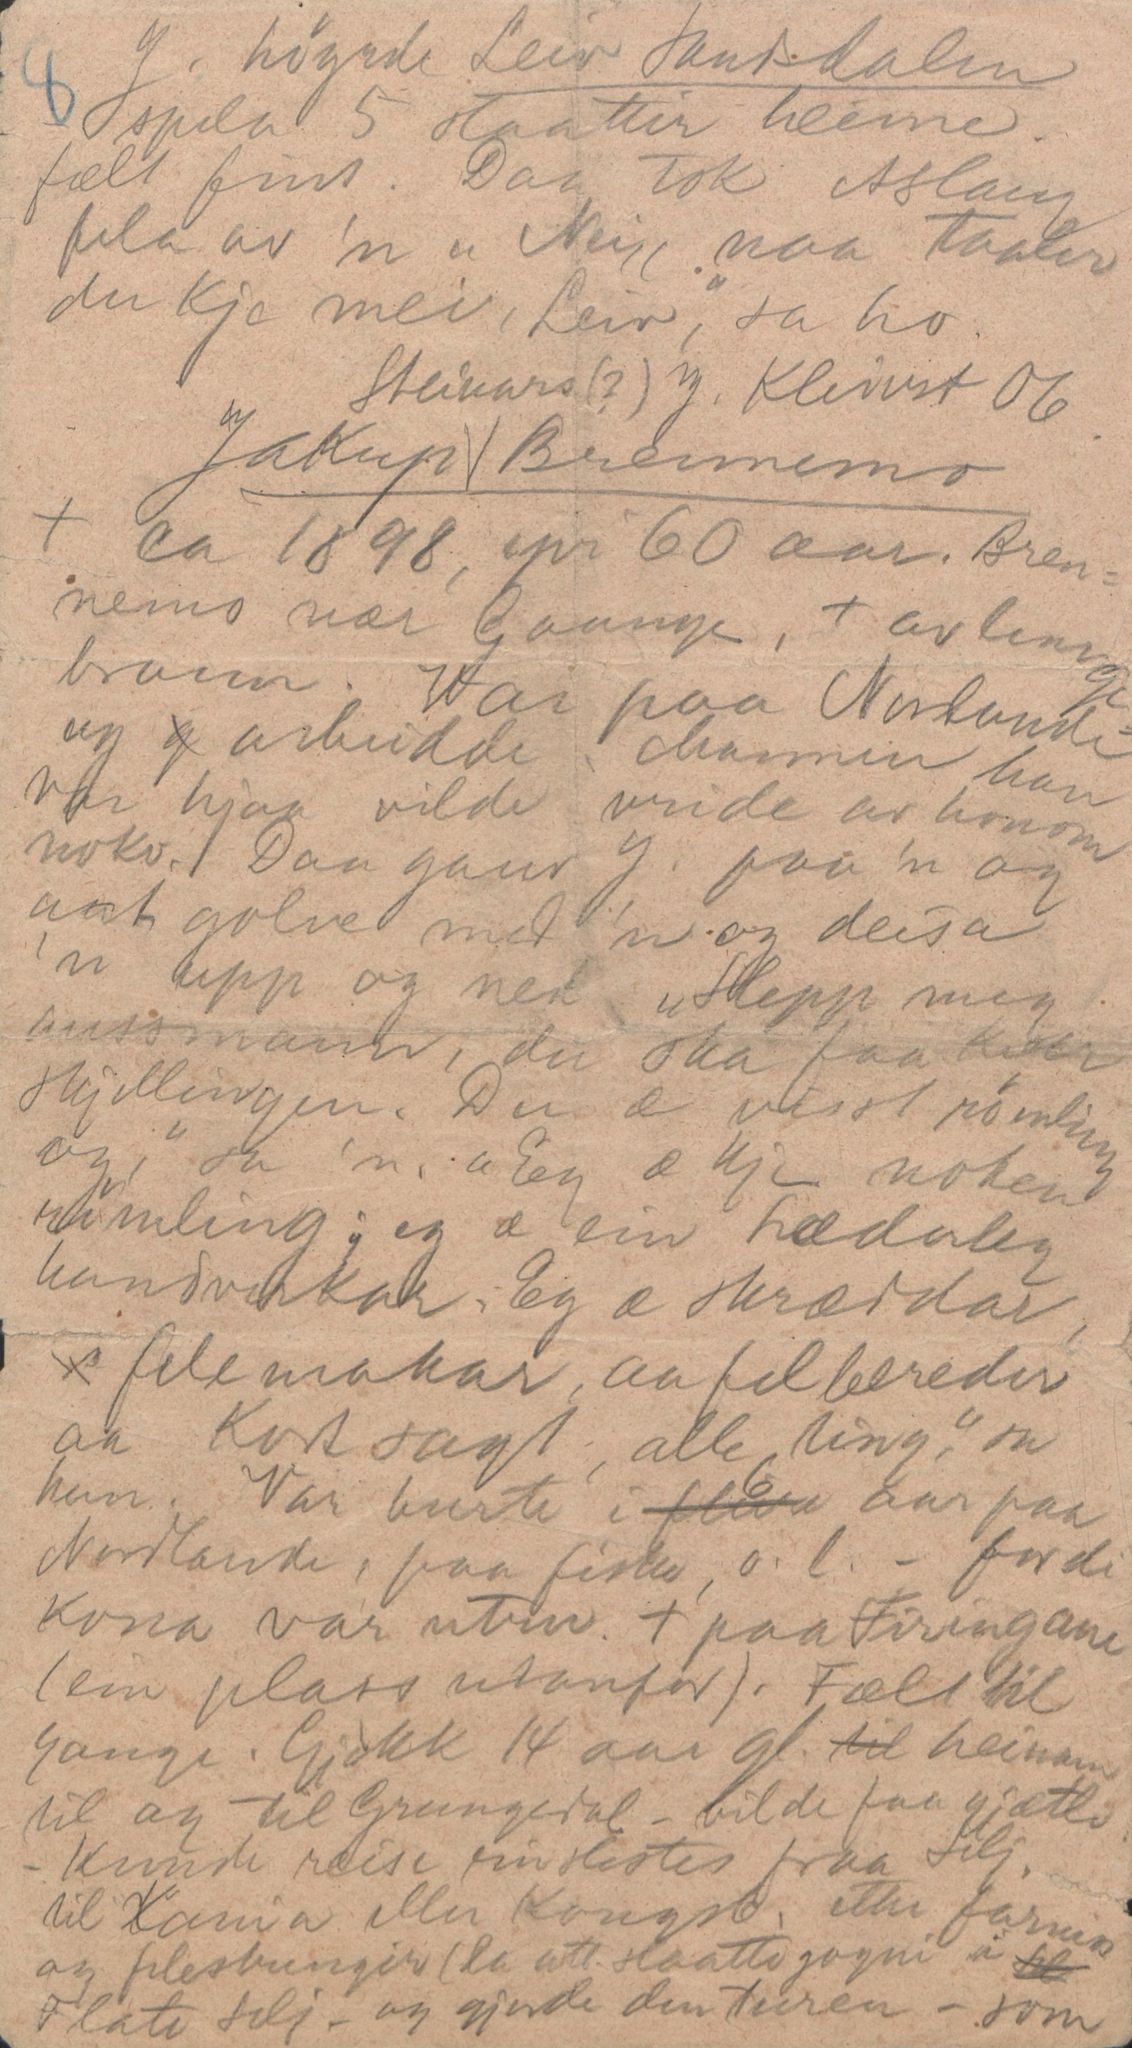 8 J. höyrde Leiv Sandsdalen
spela 5 slaattir heime.
fælt fint. Daa tok Aslaug
fela av 'n „Nei, naa taaler
du kje mei, Leiv," sa ho.
Steinars(?) J. Kleivst 06.
Jakup Brennemo
+ ca 1898, yvi 60 aar. Bren=
nemo nær Gaunge, + av lunge=
braun. Var paa Nordlande
og arbeidde. Mannen han
var hjaa vilde vride av honom
noko. Daa gauv J. paa 'n og
aat golve med 'n og deisa
'n upp og ned „Slepp meg
aussmann, du ska faa kvar
skjillingen. Du æ visst römling
og," sa 'n. „Eg æ kje noken
römling; eg æ ein hæderleg
handverkar. Eg æ skræddar,
felemakar, aa felbereder
aa kort sagt, alle ting," sa
han. Var burte i 6 aar paa
Nordlande, paa fiske, o. l. – fordi
kona var utru. + paa Firingane
(ein plass utanfor). Fælt til
gange. Gjekk 14 aar gl. til heiman
til og til Grungedal – vilde faa gjætle
– Kunde reise einslestes fraa Selj.
til Kania eller Kongsb. etter farmin
og felestrenger (la att slaattogogni å
Flate Selj – og gjorde den turen – som